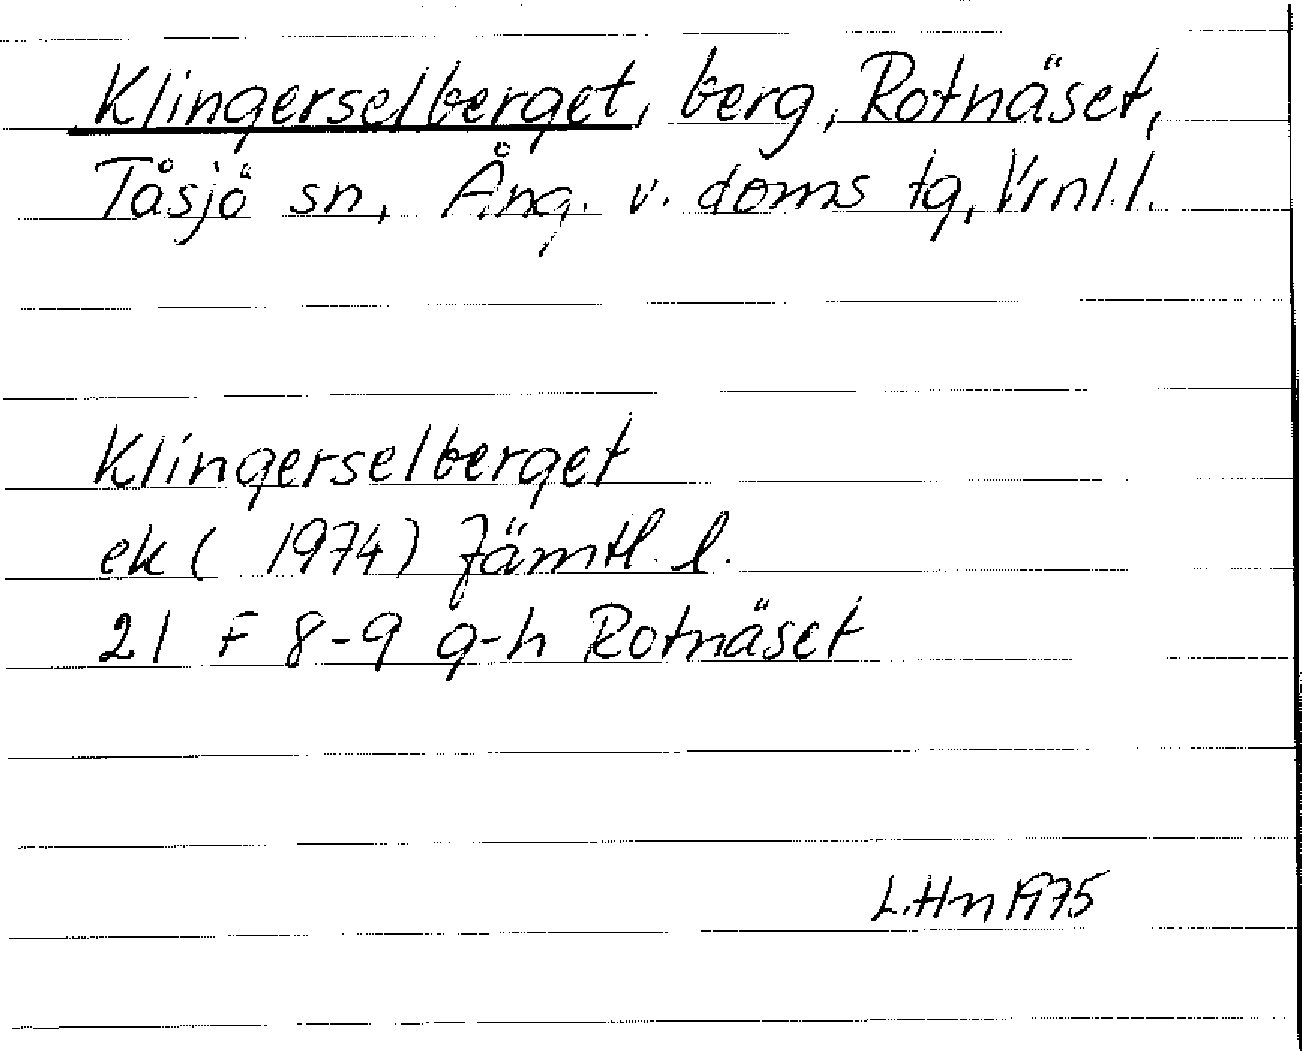 Klingerselberget, berg, Rotnäset,
Tåsjö sn, Ång. v. doms tg, Vrnl.l.
Klingerselberget
ek ( 1974) Jämtl. l.
21 F 8-9 g-h Rotnäset
L.Hn 1975